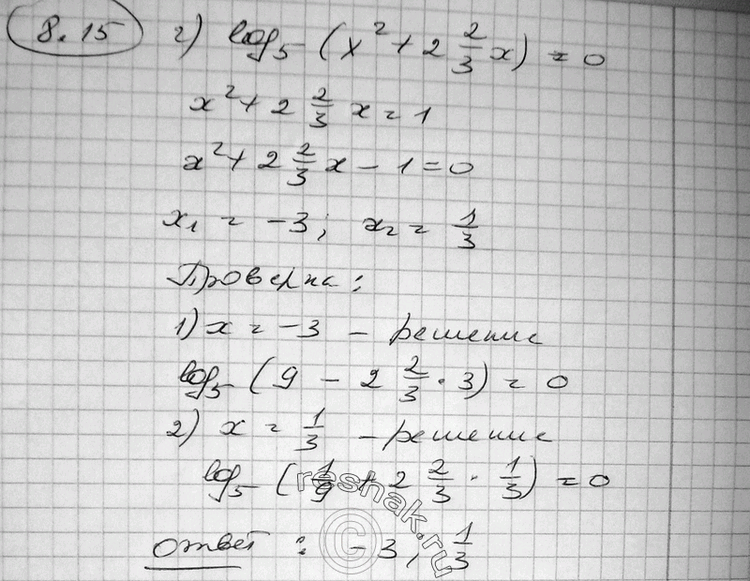 8.15 г) log₅ (x² + 2 2/3 x) = 0
x² + 2 2/3 x = 1
x² + 2 2/3 x - 1 = 0
x₁ = -3; x₂ = 1/3
Проверка:
1) x = -3 - решение
log₅ (9 - 2 2/3 · 3) = 0
2) x = 1/3 - решение
log₅ (1/9 + 2 2/3 · 1/3) = 0
Ответ: -3; 1/3
©reshak.ru